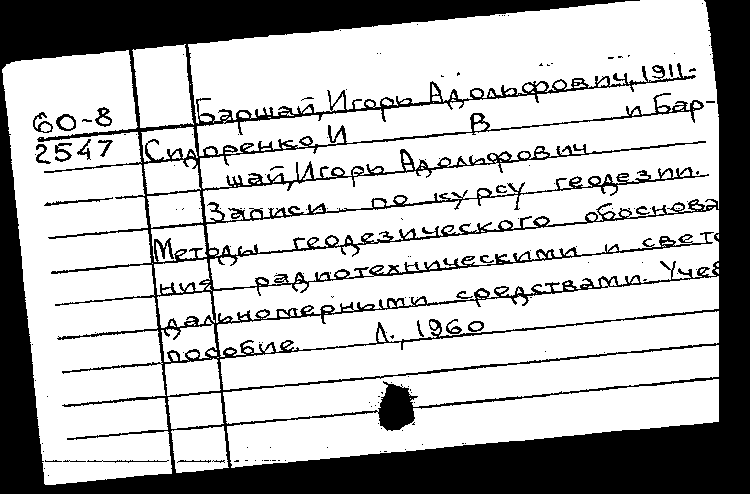 60-8 Баршай, Игорь Адольфович, 1911-
2547 Сидоренко, И В и Бар-
шай, Игорь Адольфович.
Записи по курсу геодезии.
Методы геодезического обоснова
ния радиотехническими и свето
дальномерными средствами. Учеб
пособие. Л., 1960